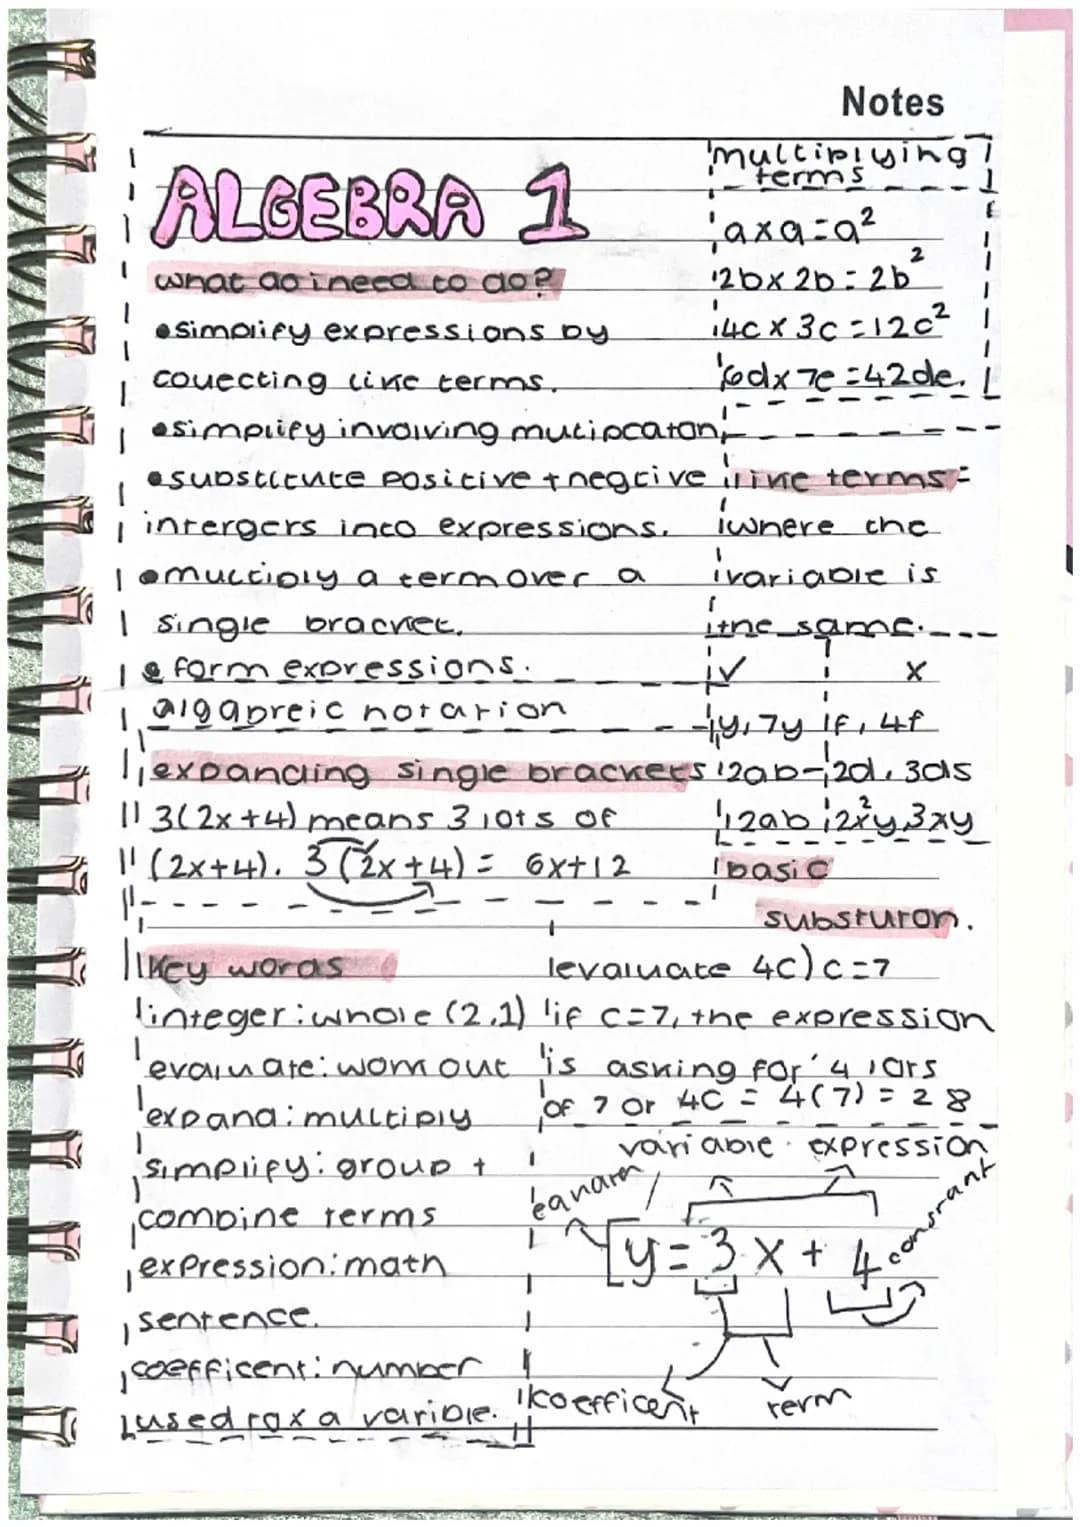 Notes
ALGEBRA 1
what do i need to do?
•simplify expressions by
collecting like terms.
•simplify involving mutipcaton
•substitute positive + negtive
intergers into expressions.
•multiply a term over a
single bracket.
• form expressions.
algabreic notation
multiplying
terms
a x a = a²
2b x 2b = 2b²
4c x 3c = 12c²
6d x 7e = 42de.
like terms =
where the
variable is
the same.
✓ x
y, 7y f, 4f
2ab - 2d, 3ds
2ab 2x²y, 3xy
expanding single brackets
3(2x+4) means 3 lots of
(2x+4). 3(2x+4) = 6x+12
basic
substuron.
evaluate 4c) c=7
if c=7, the expression
is asking for '4 lots
of 7 or 4c = 4(7) = 28
key words
integer: whole (2,1)
evaluate: work out
expand: multiply
simplify: group +
combine terms
expression: math
sentence.
coefficent: number
used for a varible.
variable expression
constant
y = 3x + 4
koefficent term